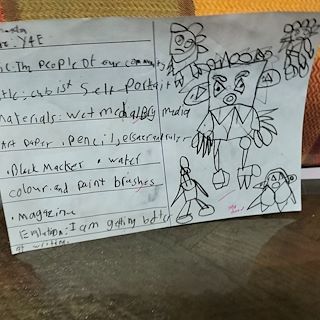 Y4E
ic: The people of our community
tle; cubist self Portait
materials: wet media/Dry media
Art Paper . Pencil, eraser and ruler
. Black Marker . water
colour and paint brushes
. magazine
I am getting better
at writing.